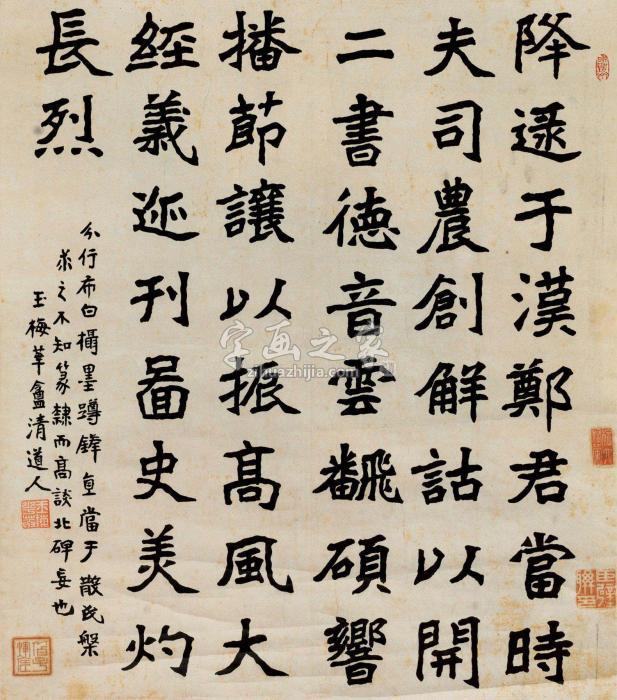 降逯于漢鄭君當時
夫司農創解詁以開
二書徳音雲飜碩響
播節讓以振高風大
經義迹刊啚史美灼
長烈
分行布白攝墨蹲鋒直當于散氏槃
求之不知篆隸而高談北碑妄也
玉梅華盦清道人
字画之家
zihuazhijia.com